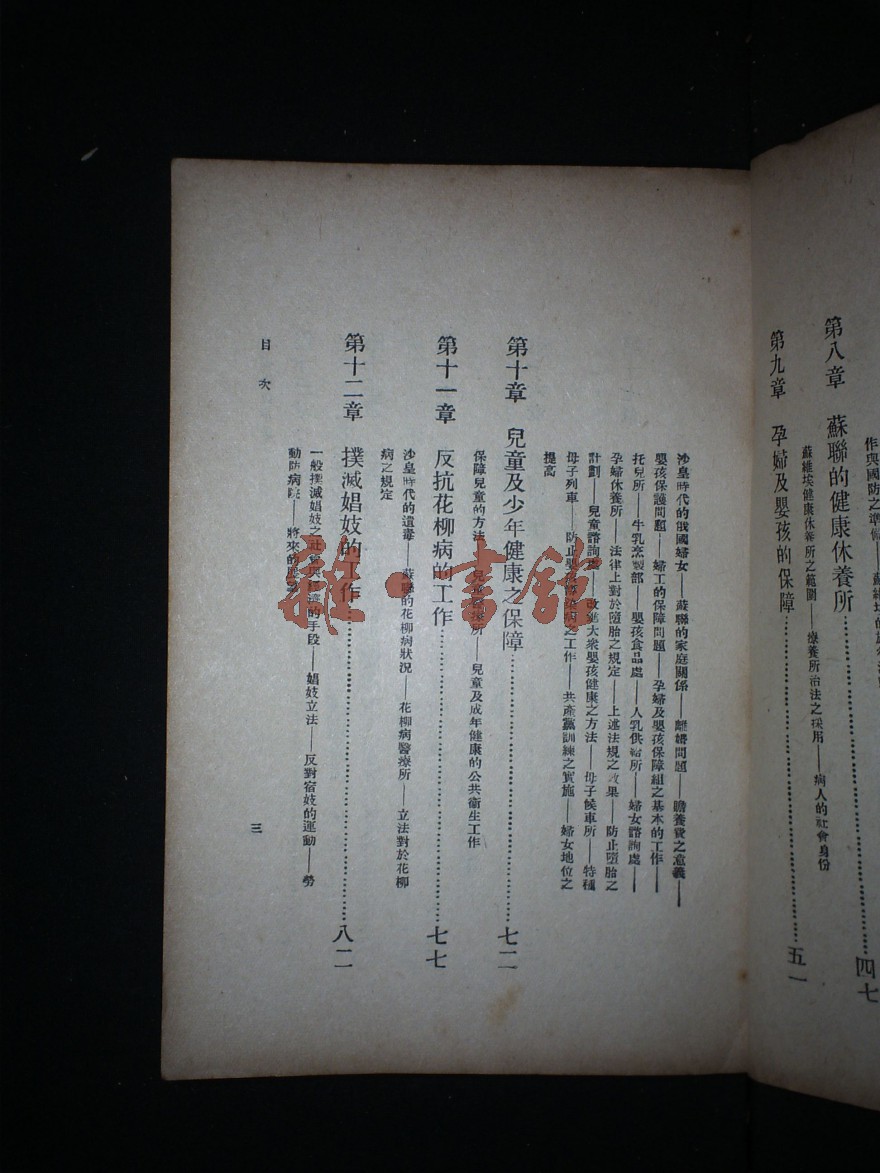 作與國防之準備——蘇維埃的
第八章 蘇聯的健康休養所……四七
蘇維埃健康休養所之範圍——療養所治法之採用——病人的社會身份
第九章 孕婦及嬰孩的保障……五一
沙皇時代的俄國婦女——蘇聯的家庭關係——離婚問題——贍養費之意義——
嬰孩保護問題——婦工的保障問題——孕婦及嬰孩保障組之基本的工作——
托兒所——牛乳烹製部——嬰孩食品處——人乳供給所——婦女諮詢處——
孕婦休養所——法律上對於墮胎之規定——上述法規之效果——防止墮胎之
計劃——兒童諮詢處——改進大衆嬰孩健康之方法——母子候車所——特種
母子列車——防止嬰孩傳染病之工作——共產黨訓練之實施——婦女地位之
提高
第十章 兒童及少年健康之保障……七二
保障兒童的方法——兒童醫療所——兒童及成年健康的公共衞生工作
第十一章 反抗花柳病的工作……七七
沙皇時代的遺毒——蘇聯的花柳病狀況——花柳病醫療所——立法對於花柳
病之規定
第十二章 撲滅娼妓的工作……八二
一般撲滅娼妓之社會與經濟的手段——娼妓立法——反對宿妓的運動——勞
動防病院——將來的展望
目次
三
雜·書館